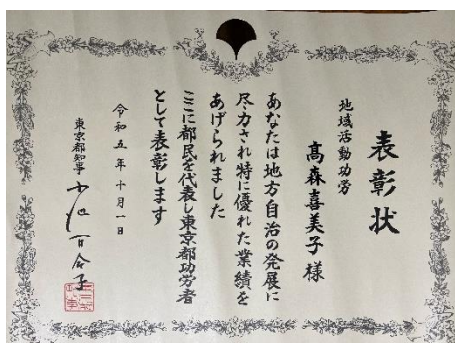 表彰状
地域活動功労
髙森喜美子様
あなたは地方自治の発展に
尽力され特に優れた業績を
あげられました
ここに都民を代表し東京都功労者
として表彰します
令和五年十月一日
東京都知事 小池百合子